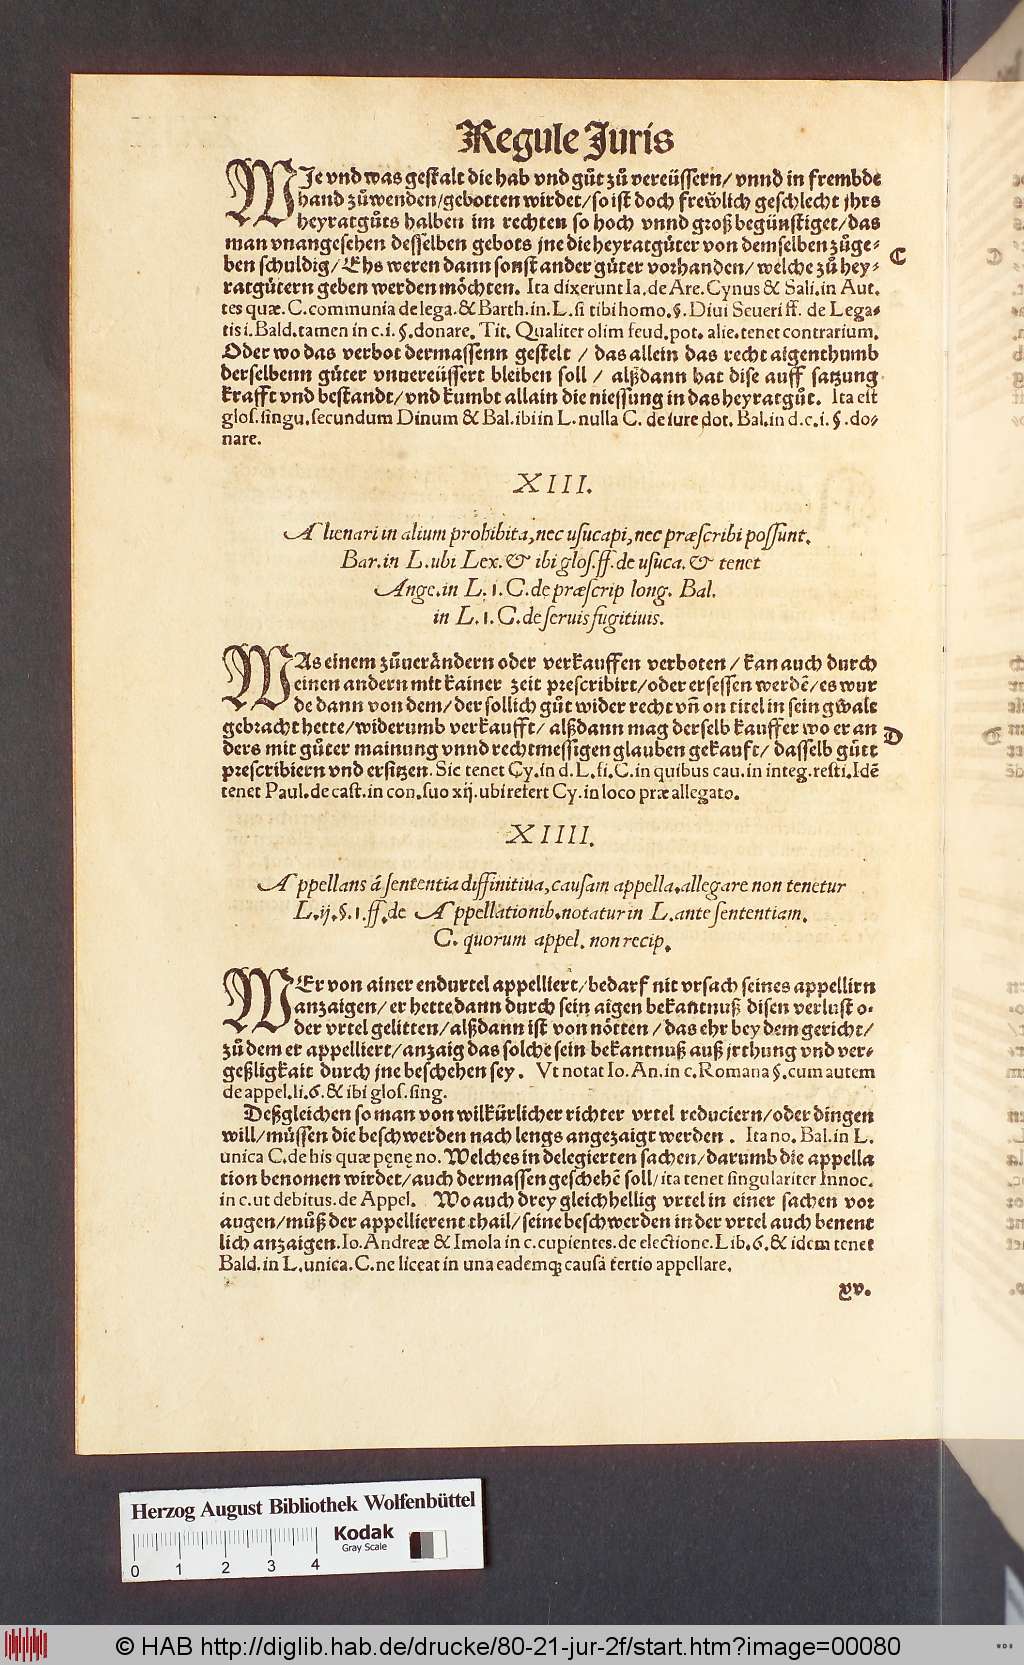 Regule Juris
WJe vnd was gestalt die hab vnd gůt zů vereüssern/ vnnd in frembde
hand zůwenden/gebotten wirdet/so ist doch frewlich geschlecht jhrs
heyratgůts halben im rechten so hoch vnnd groß begünstiget/das
man vnangesehen desselben gebots jne die heyratgůter von demselben zůge-
ben schuldig/ Ehs weren dann sonst ander gůter vorhanden/ welche zů hey-
ratgůtern geben werden möchten. Ita dixerunt Ia. de Are. Cynus & Sali. in Aut.
tes quæ. C. communia de lega. & Barth. in. L. si tibi homo. §. Diui Seueri ff. de Lega-
tis i. Bald. tamen in c. i. §. donare. Tit. Qualiter olim feud. pot. alie. tenet contrarium.
Oder wo das verbot dermassenn gestelt / das allein das recht aigenthumb
derselbenn gůter vnuereüssert bleiben soll / alßdann hat dise auff satzung
krafft vnd bestandt/ vnd kumbt allain die niessung in das heyratgůt. Ita est
glos. singu. secundum Dinum & Bal. ibi in L. nulla C. de iure dot. Bal. in d. c. i. §. do-
nare.
C
XIII.
Alienari in alium prohibita, nec usucapi, nec præscribi possunt.
Bar. in L. ubi Lex. & ibi glos. ff. de usuca. & tenet
Ange. in L. 1. C. de præscrip long. Bal.
in L. 1. C. de seruis fugitiuis.
WAs einem zůuerändern oder verkauffen verboten / kan auch durch
einen andern mit kainer zeit prescribirt/oder ersessen werdē/ es wur
de dann von dem/ der sollich gůt wider recht vñ on titel in sein gwalt
gebracht hette/widerumb verkaufft/ alßdann mag derselb kauffer wo er an
ders mit gůter mainung vnnd rechtmessigen glauben gekauft/ dasselb gůtt
prescribiern vnd ersitzen. Sic tenet Cy. in d. L. fi. C. in quibus cau. in integ. resti. Idē
tenet Paul. de cast. in con. suo xij. ubi refert Cy. in loco præ allegato.
D
XIIII.
Appellans á sententia diffinitiua, causam appella. allegare non tenetur
L. ij. §. 1. ff. de Appellationib. notatur in L. ante sententiam.
C. quorum appel. non recip.
WEr von ainer endurtel appelliert/bedarf nit vrsach seines appellirn
anzaigen/ er hette dann durch sein aigen bekantnuß disen verlust o-
der vrtel gelitten/alßdann ist von nötten / das ehr bey dem gericht/
zů dem er appelliert/anzaig das solche sein bekantnuß auß jrthung vnd ver-
geßligkait durch jne beschehen sey. Vt notat Io. An. in c. Romana §. cum autem
de appel. li. 6. & ibi glos. sing.
Deßgleichen so man von wilkürlicher richter vrtel reduciern/oder dingen
will/müssen die beschwerden nach lengs angezaigt werden . Ita no. Bal. in L.
unica C. de his quæ pęnę no. Welches in delegierten sachen/darumb die appella
tion benomen wirdet/auch dermassen geschehē soll/ita tenet singulariter Innoc.
in c. ut debitus. de Appel. Wo auch drey gleichhellig vrtel in einer sachen vor
augen/můß der appellierent thail/ seine beschwerden in der vrtel auch benent
lich anzaigen. Io. Andreæ & Imola in c. cupientes. de electione. Lib. 6. & idem tenet
Bald. in L. unica. C. ne liceat in una eademq; causa tertio appellare.
xv.
Herzog August Bibliothek Wolfenbüttel
Kodak
Gray Scale
0 1 2 3 4
© HAB http://diglib.hab.de/drucke/80-21-jur-2f/start.htm?image=00080